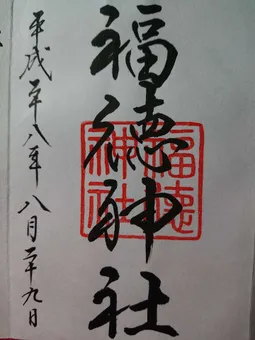 福徳神社
福徳神社
平成二十八年八月二十九日